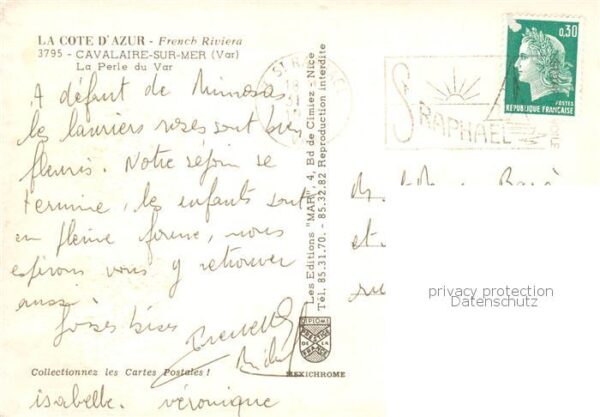 LA COTE D'AZUR - French Riviera
3795 - CAVALAIRE-SUR-MER (Var)
La Perle du Var
A défaut de Mimosas
les lauriers roses sont bien
fleuris. Notre séjour se
termine, les enfants sont
en pleine forme, nous
espérons vous y retrouver
aussi
Grosses bises
Collectionnez les Cartes Postales !
isabelle. véronique
Les Editions "MAR", 4, Bd de Cimiez - Nice
Tél. 85.31.70. - 85.32.82 Reproduction interdite
DIPLOME
PRESTIGE
DE LA
FRANCE
MEXICHROME
ST RAPHAEL
0,30
POSTES
REPUBLIQUE FRANÇAISE
et
privacy protection
Datenschutz